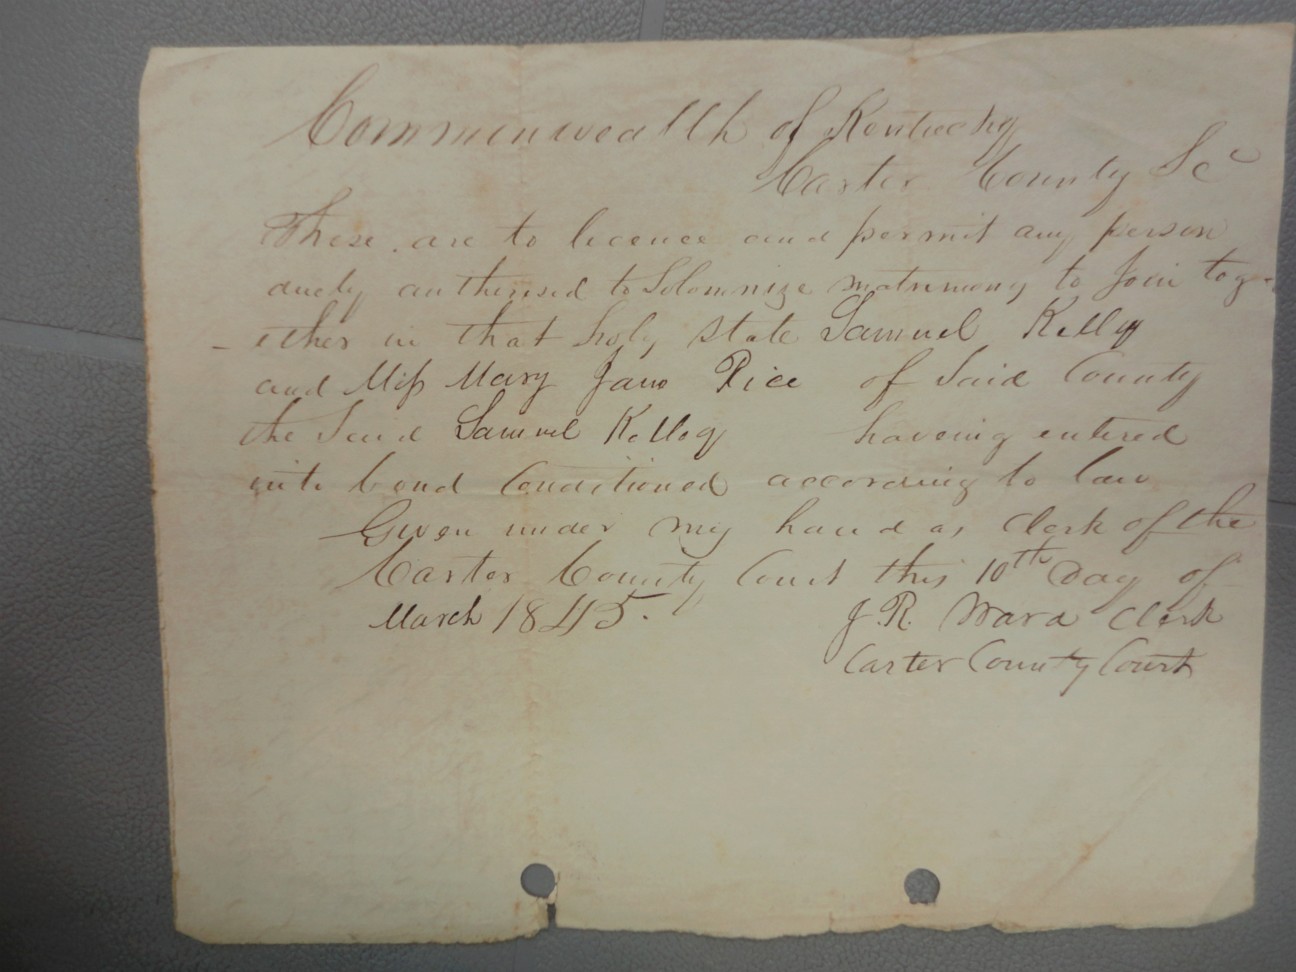 Commonwealth of Kentucky
Carter County Sc
These are to licence and permit any person
duely authorised to Solomnize matrimony to Join tog-
-ether in that holy state Samuel Kellog
and Miss Mary Jane Rice of Said County
the Said Samuel Kellog haveing entered
into bond Conditioned according to law
Given under my hand as Clerk of the
Carter County Court this 10th Day of
March 1845.
J. R. Ward Clerk
Carter County Court